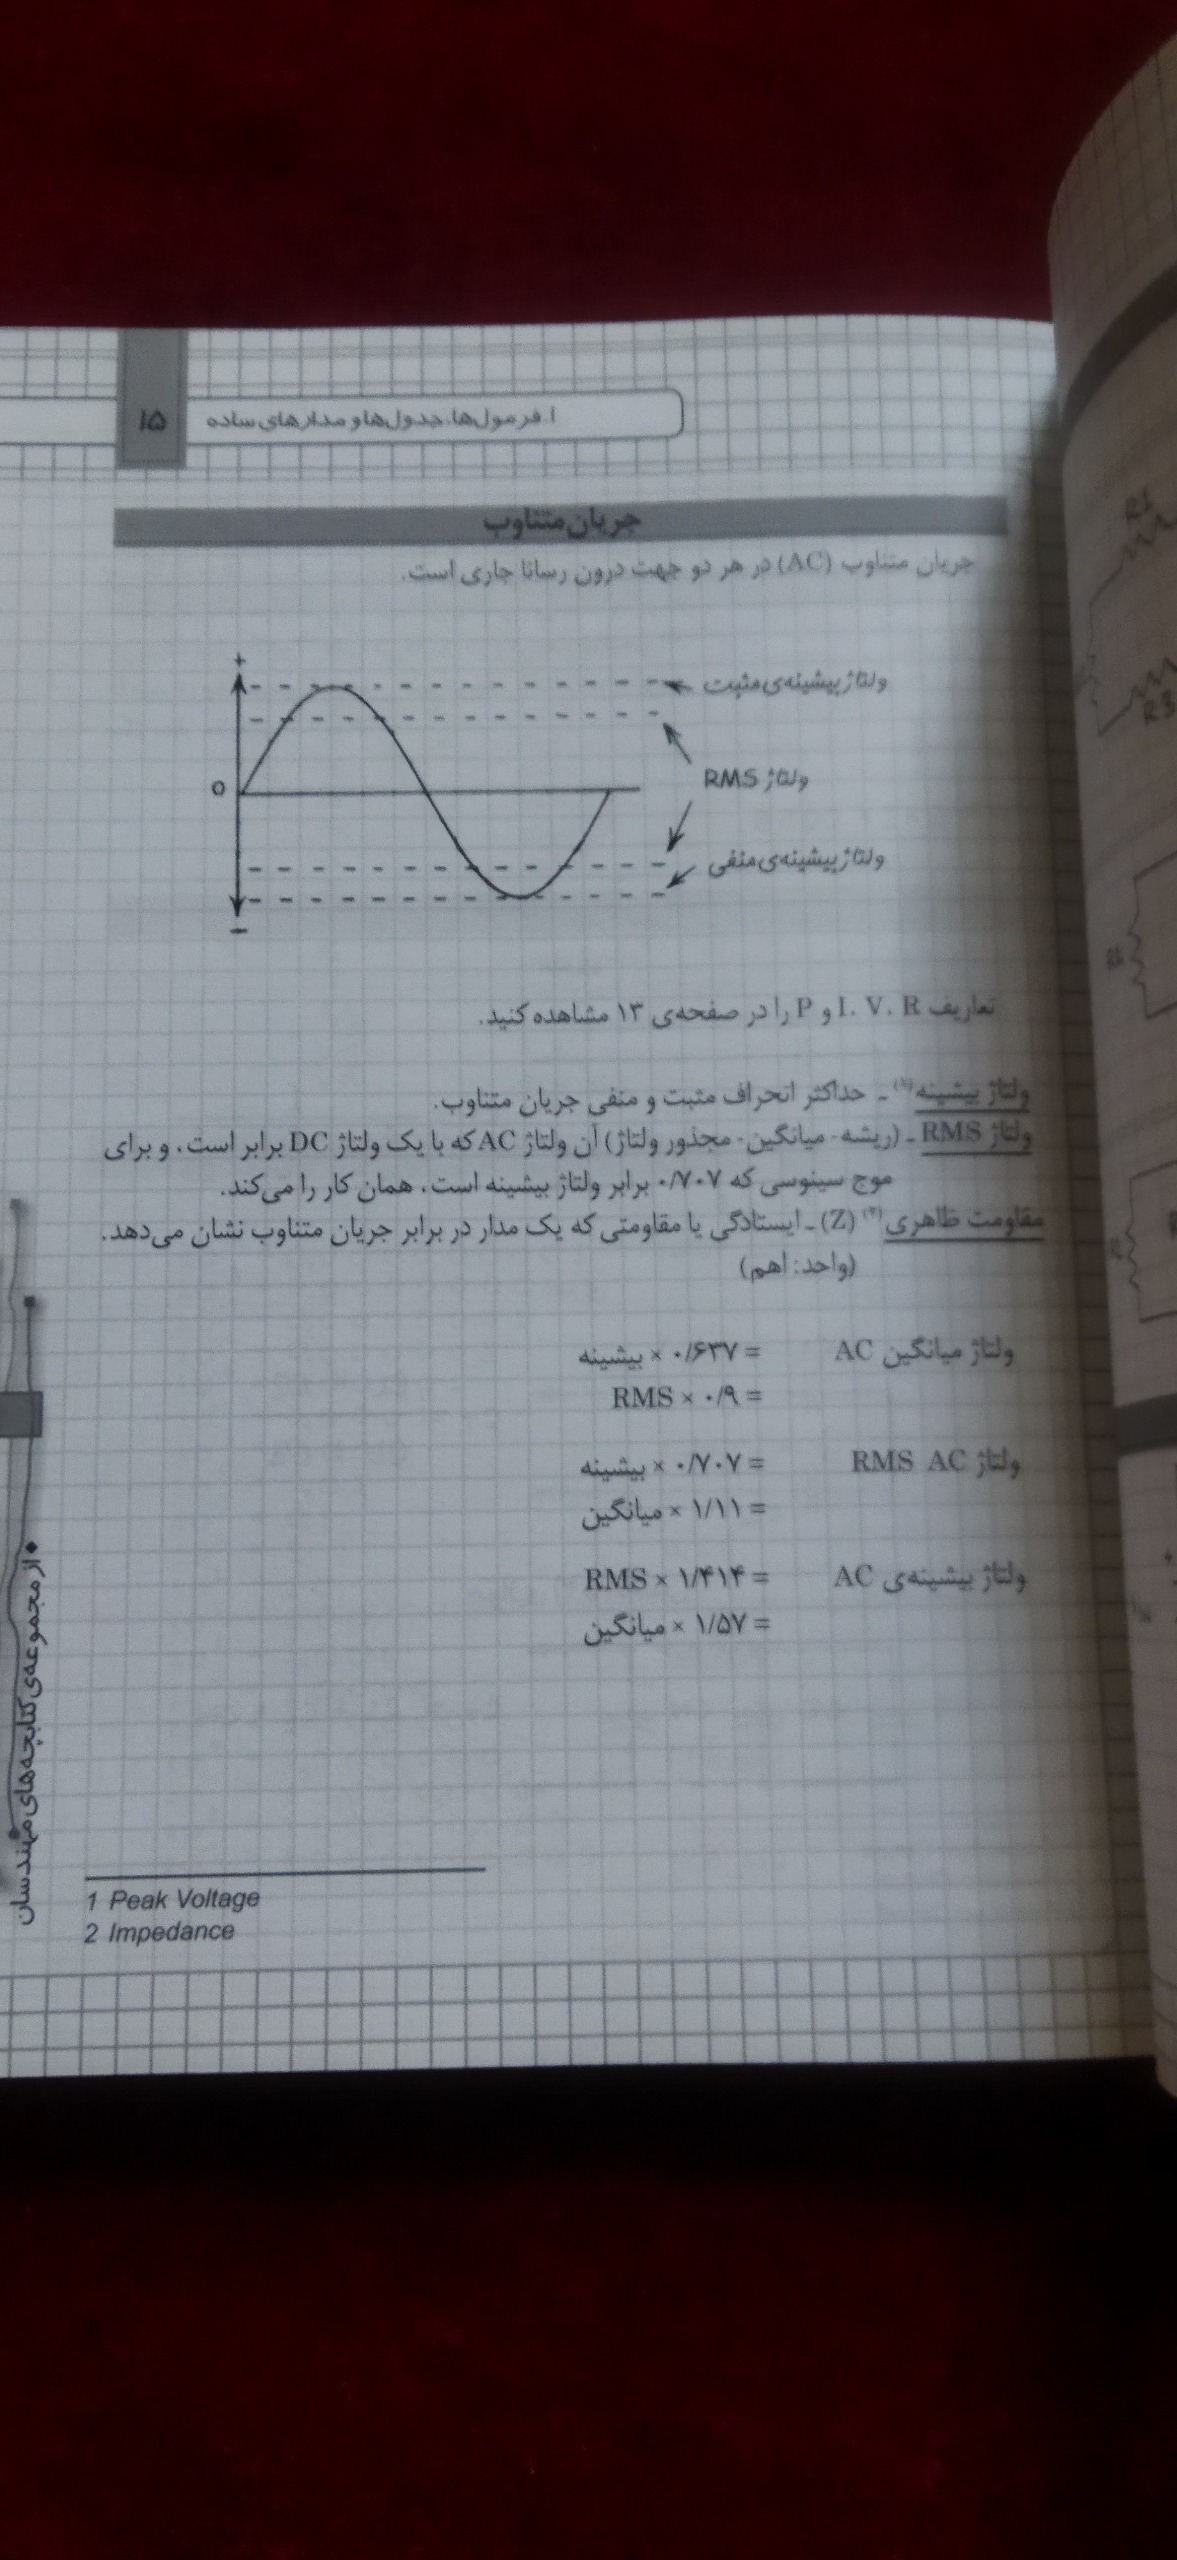 ۱۵
۱. فرمول‌ها، جدول‌ها و مدارهای ساده
جریان متناوب
جریان متناوب (AC) در هر دو جهت درون رسانا جاری است.
+
ولتاژ بیشینه‌ی مثبت
0
ولتاژ RMS
ولتاژ بیشینه‌ی منفی
-
تعاریف I، V، R و P را در صفحه‌ی ۱۳ مشاهده کنید.
ولتاژ بیشینه(۱) - حداکثر انحراف مثبت و منفی جریان متناوب.
ولتاژ RMS - (ریشه- میانگین- مجذور ولتاژ) آن ولتاژ AC که با یک ولتاژ DC برابر است، و برای
موج سینوسی که ۰/۷۰۷ برابر ولتاژ بیشینه است، همان کار را می‌کند.
مقاومت ظاهری(۲) (Z) - ایستادگی یا مقاومتی که یک مدار در برابر جریان متناوب نشان می‌دهد.
(واحد: اهم)
ولتاژ میانگین AC = ۰/۶۳۷ × بیشینه
= ۰/۹ × RMS
ولتاژ RMS AC = ۰/۷۰۷ × بیشینه
= ۱/۱۱ × میانگین
ولتاژ بیشینه‌ی AC = ۱/۴۱۴ × RMS
= ۱/۵۷ × میانگین
1 Peak Voltage
2 Impedance
از مجموعه‌ی کتابچه‌های مهندسان
R1
R3